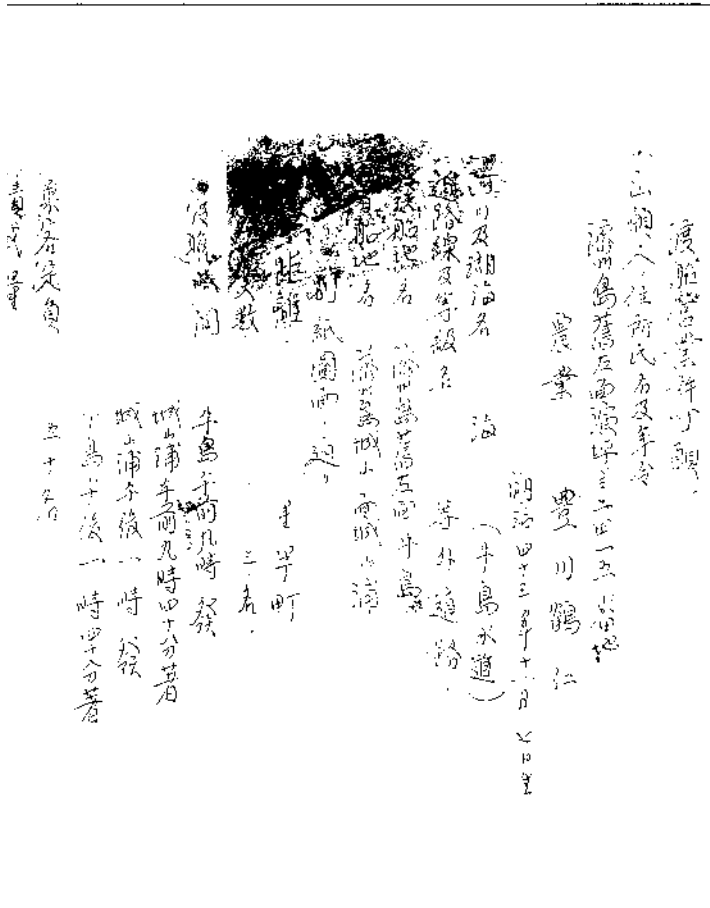 渡船營業許可願
出願人住所氏名及年令
濟州島舊左面演坪里二四一五番地
農業 豊川鶴仁
明治四十三年十一月六日生
河川及湖海名 海 (牛島水道)
道路線及等級名 等外道路
渡船地名 濟州島舊左面牛島
着船地名 濟州島城山面城山浦
別紙圖面ノ通リ
距離 半町
夫數 三名
渡船時間 牛島午前九時發
城山浦午前九時四十分着
城山浦午後一時發
牛島午後一時四十分着
乘客定員 五十名
積載量